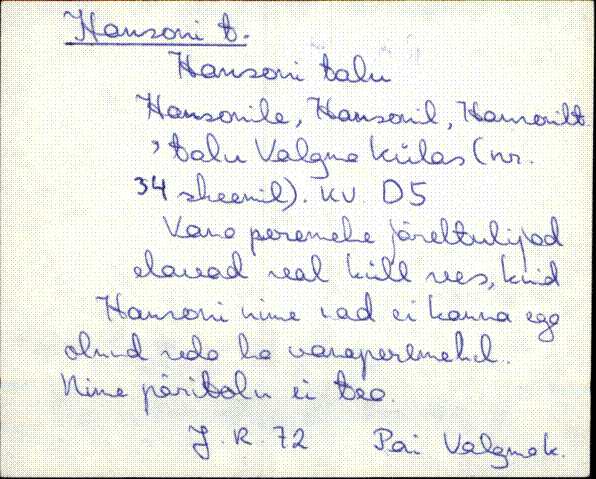 Hansoni t.
Hansoni talu
Hansonile, Hansonil, Hansonilt
, talu Valgma külas (nr.
34 skeemil). KV. D5
Vana peremehe järeltulijad
elavad seal küll sees, kuid
Hansoni nime nad ei kanna ega
olnud seda ka vanaperemehel.
Nime päritolu ei tea.
J. R. 72 Pai Valgmak.